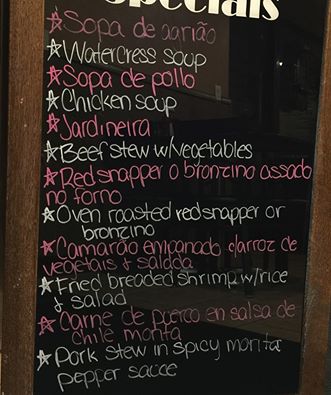 Specials
☆Sopa de agrião
☆Watercress soup
☆Sopa de pollo
☆Chicken soup
☆Jardineira
☆Beef stew w/vegetables
☆Red snapper o bronzino assado
no forno
☆Oven roasted red snapper or
bronzino
☆Camarão empanado c/arroz de
vegetais & salada
☆Fried breaded shrimp w/rice
& salad
☆Carne de porco en salsa de
chile morita
☆Pork stew in spicy morita
pepper sauce